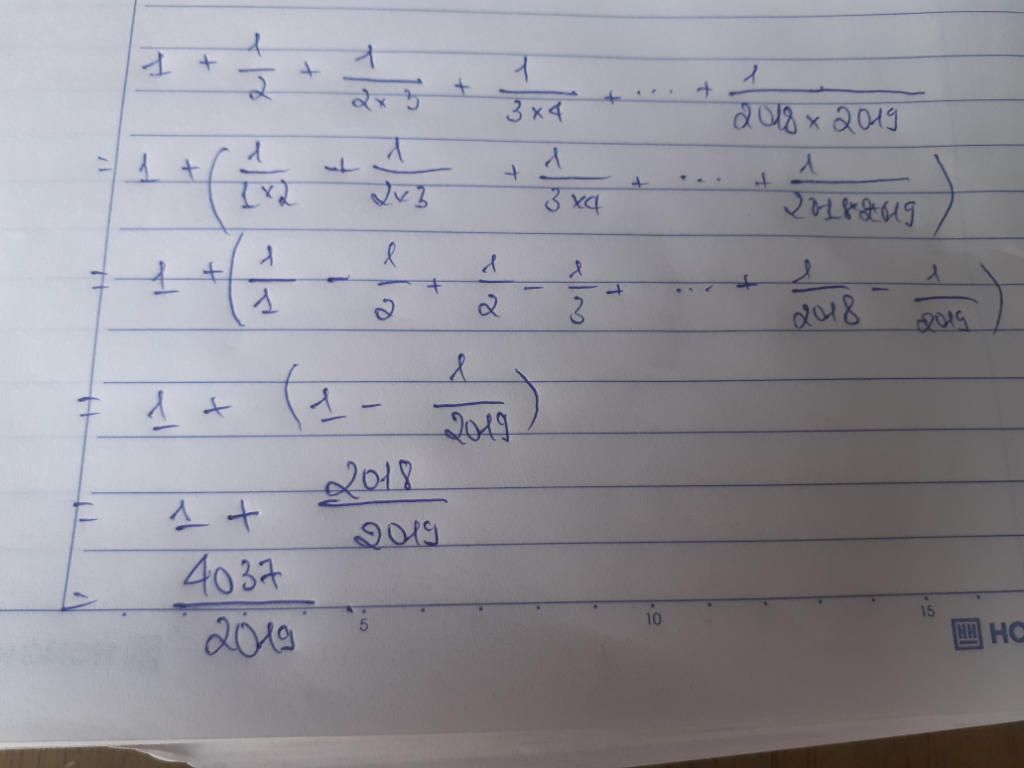 1 + 1/2 + 1/(2×3) + 1/(3×4) + ... + 1/(2018×2019)
= 1 + (1/(1×2) + 1/(2×3) + 1/(3×4) + ... + 1/(2018×2019))
= 1 + (1/1 - 1/2 + 1/2 - 1/3 + ... + 1/2018 - 1/2019)
= 1 + (1 - 1/2019)
= 1 + 2018/2019
= 4037/2019
5 10 15
HH HO